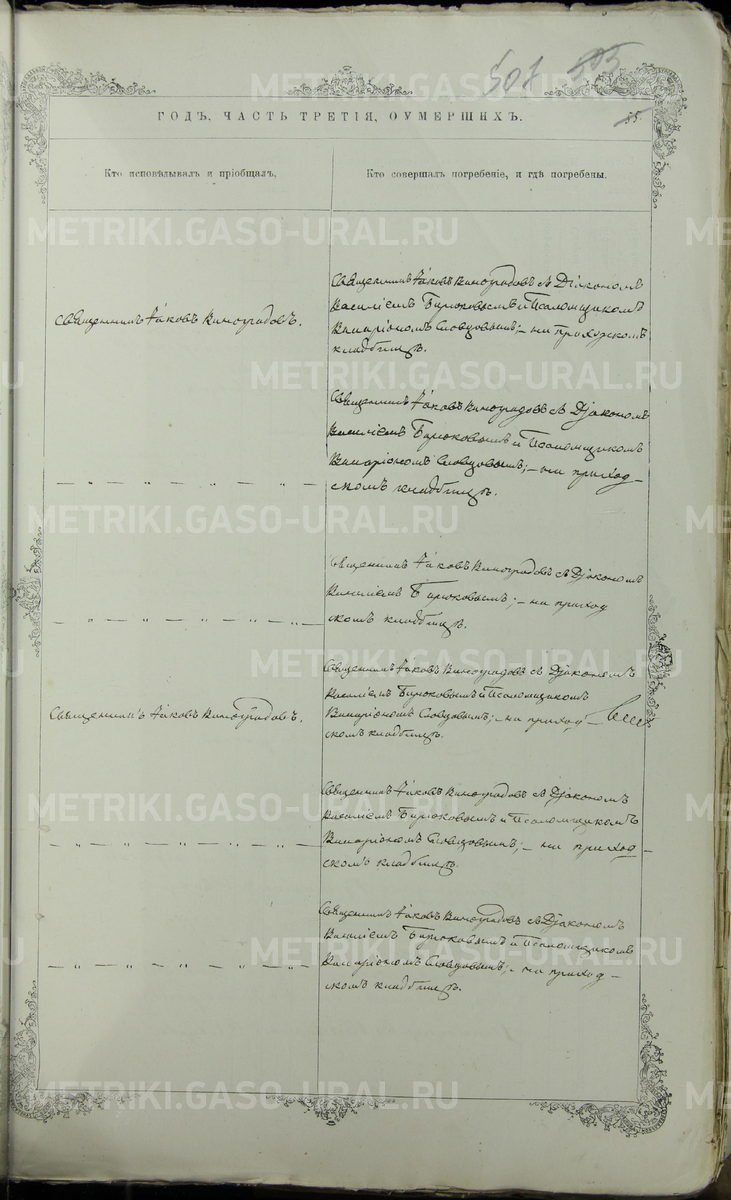 507 505
ГОДЪ, ЧАСТЬ ТРЕТІЯ, ОУМЕРШИХЪ.
85.
Кто исповѣдывалъ и пріобщалъ.
Кто совершалъ погребеніе, и гдѣ погребены.
Священникъ Іаковъ Виноградовъ.
Священникъ Іаковъ Виноградовъ съ Діакономъ
Василіемъ Бирюковымъ и Псаломщикомъ
Иларіономъ Словцовымъ; – на приходскомъ
кладбищѣ.
— „ — „ — „ — „ —
Священникъ Іаковъ Виноградовъ съ Діакономъ
Василіемъ Бирюковымъ и Псаломщикомъ
Иларіономъ Словцовымъ; – на приход-
скомъ кладбищѣ.
— „ — „ — „ — „ —
Священникъ Іаковъ Виноградовъ съ Діакономъ
Василіемъ Бирюковымъ; – на приход
скомъ кладбищѣ.
Священникъ Іаковъ Виноградовъ.
Священникъ Іаковъ Виноградовъ съ Діакономъ
Василіемъ Бирюковымъ и Псаломщикомъ
Иларіономъ Словцовымъ; – на приход-
скомъ кладбищѣ.
— „ — „ — „ — „ —
Священникъ Іаковъ Виноградовъ съ Діакономъ
Василіемъ Бирюковымъ и Псаломщикомъ
Иларіономъ Словцовымъ; – на приход-
скомъ кладбищѣ.
— „ — „ — „ — „ —
Священникъ Іаковъ Виноградовъ съ Діакономъ
Василіемъ Бирюковымъ и Псаломщикомъ
Иларіономъ Словцовымъ; – на приход-
скомъ кладбищѣ.
METRIKI.GASO-URAL.RU